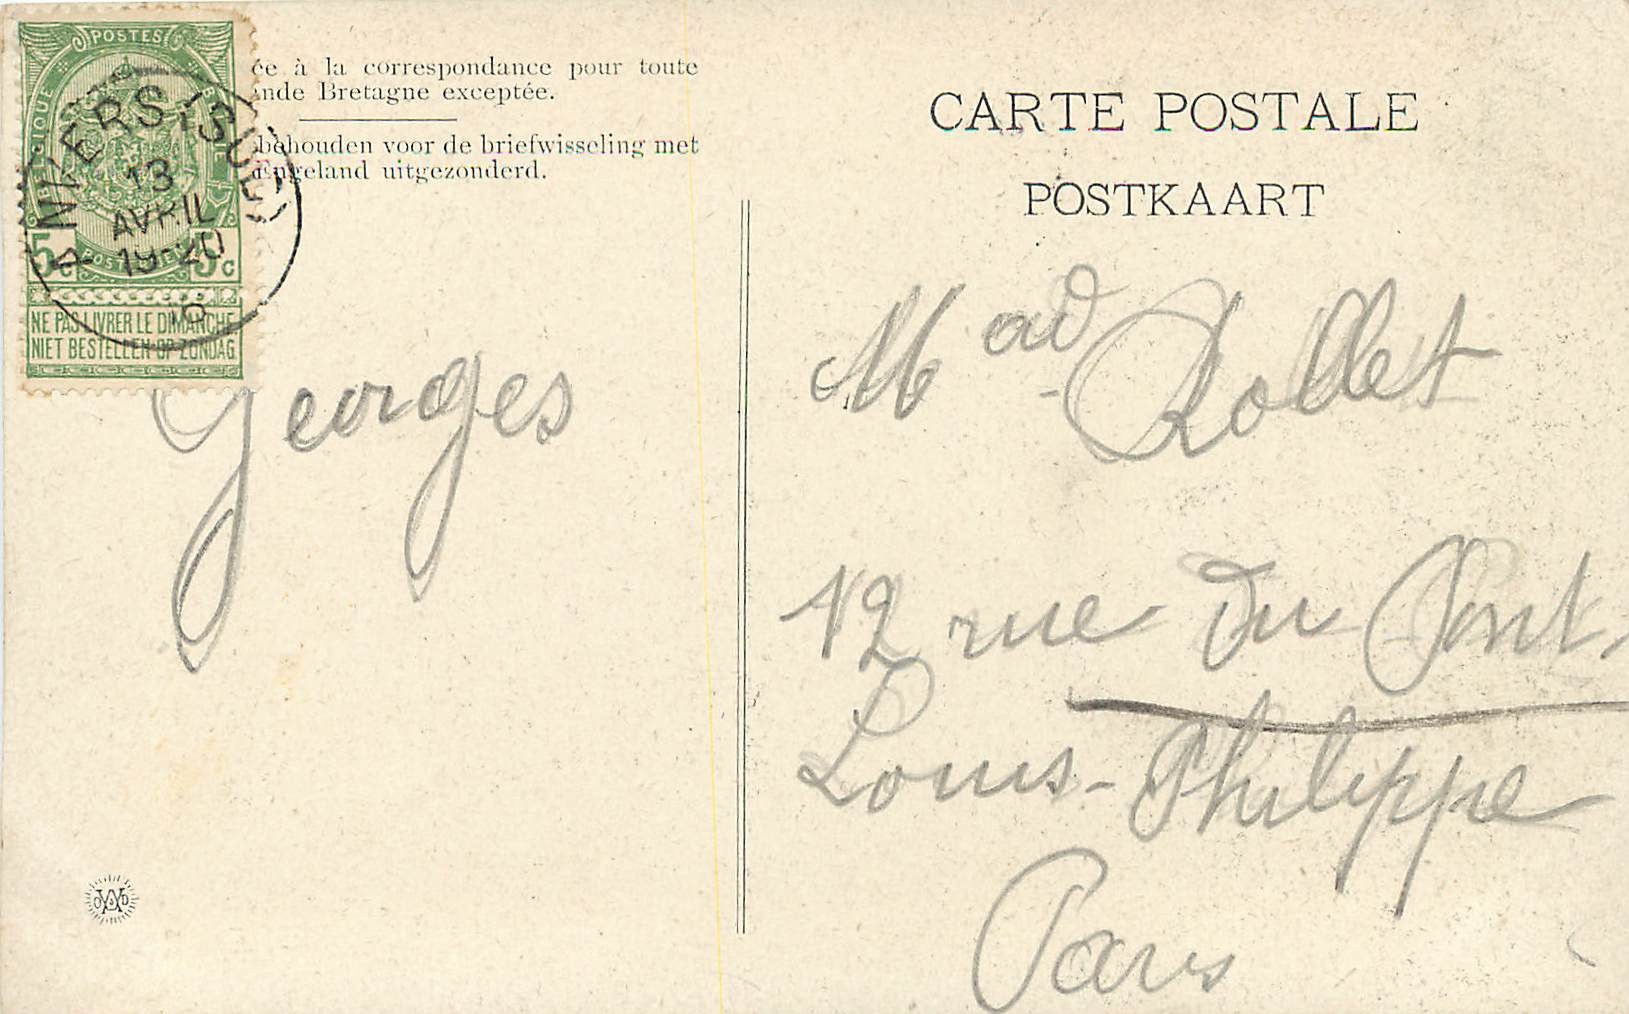 POSTES
BELGIQUE
5c 5c
NE PAS LIVRER LE DIMANCHE
NIET BESTELLEN OP ZONDAG
ANVERS (SUD)
13
AVRIL
19-20
10
ée à la correspondance pour toute
ande Bretagne exceptée.
behouden voor de briefwisseling met
Engeland uitgezonderd.
Georges
CARTE POSTALE
POSTKAART
Mad. Rollet
12 rue du Pont
Louis-Philippe
Paris